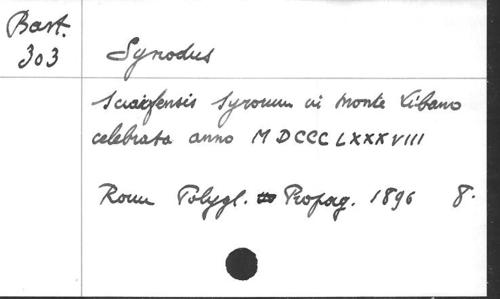 Bart.
303
Synodus
Sciarfensis Syrorum in Monte Libano
celebrata anno MDCCCLXXXVIII
Rom Polygl. Propag. 1896 8.